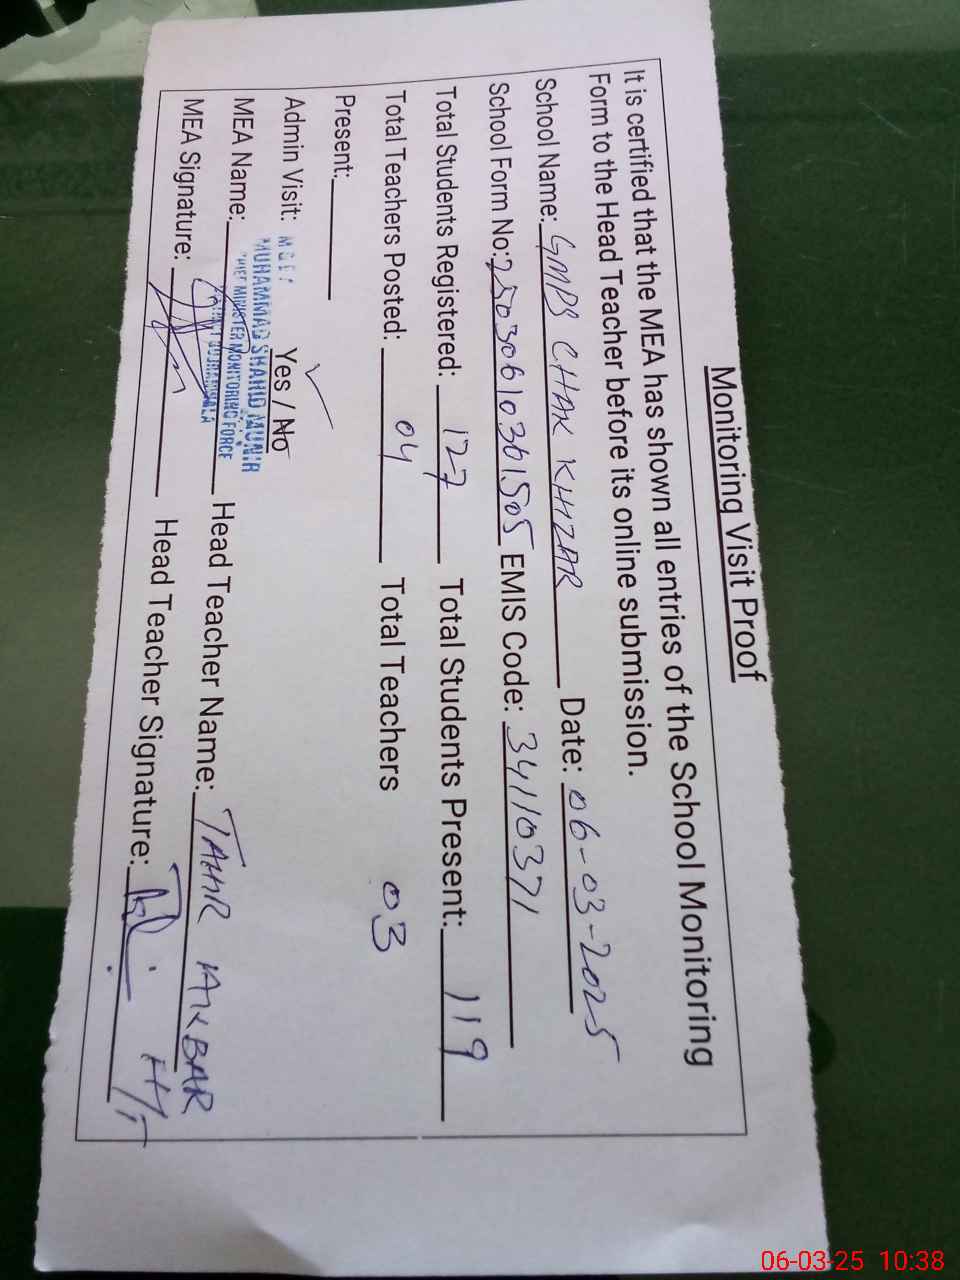 Monitoring Visit Proof
It is certified that the MEA has shown all entries of the School Monitoring
Form to the Head Teacher before its online submission.
School Name: GMPS CHAK KHIZAR Date: 06-03-2025
School Form No: 25030610361505 EMIS Code: 34110371
Total Students Registered: 127 Total Students Present: 119
Total Teachers Posted: 04 Total Teachers 03
Present:
Admin Visit: Yes / No
MUHAMMAD SHAHID MUNIR
CHIEF MINISTER MONITORING FORCE
MEA Name: Head Teacher Name: TAHIR AKBAR
MEA Signature: Head Teacher Signature: H/T
06-03-25 10:38